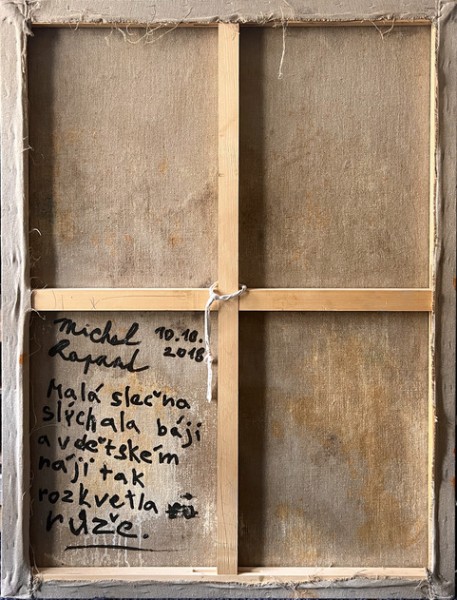 Michal 10.10.
Rapand 2018
Malá slečna
slýchala báji
a v dětském
háji tak
rozkvetla
růže.